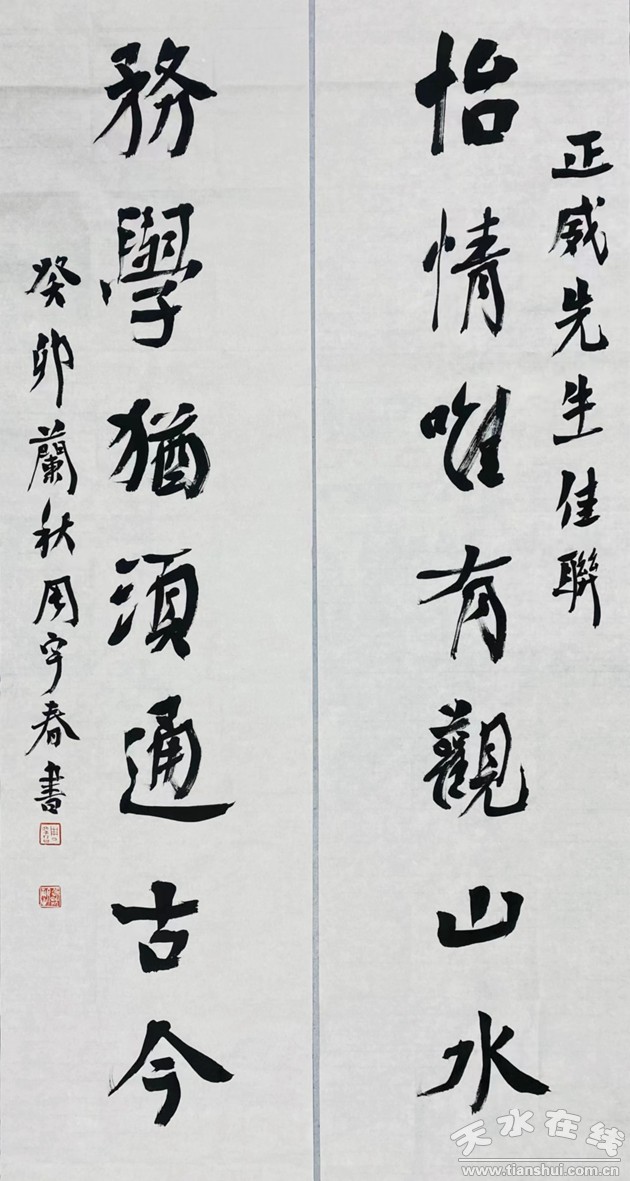 正威先生佳聯
怡情唯有觀山水
務學猶須通古今
癸卯蘭秋周宇春書
天水在线
www.tianshui.com.cn